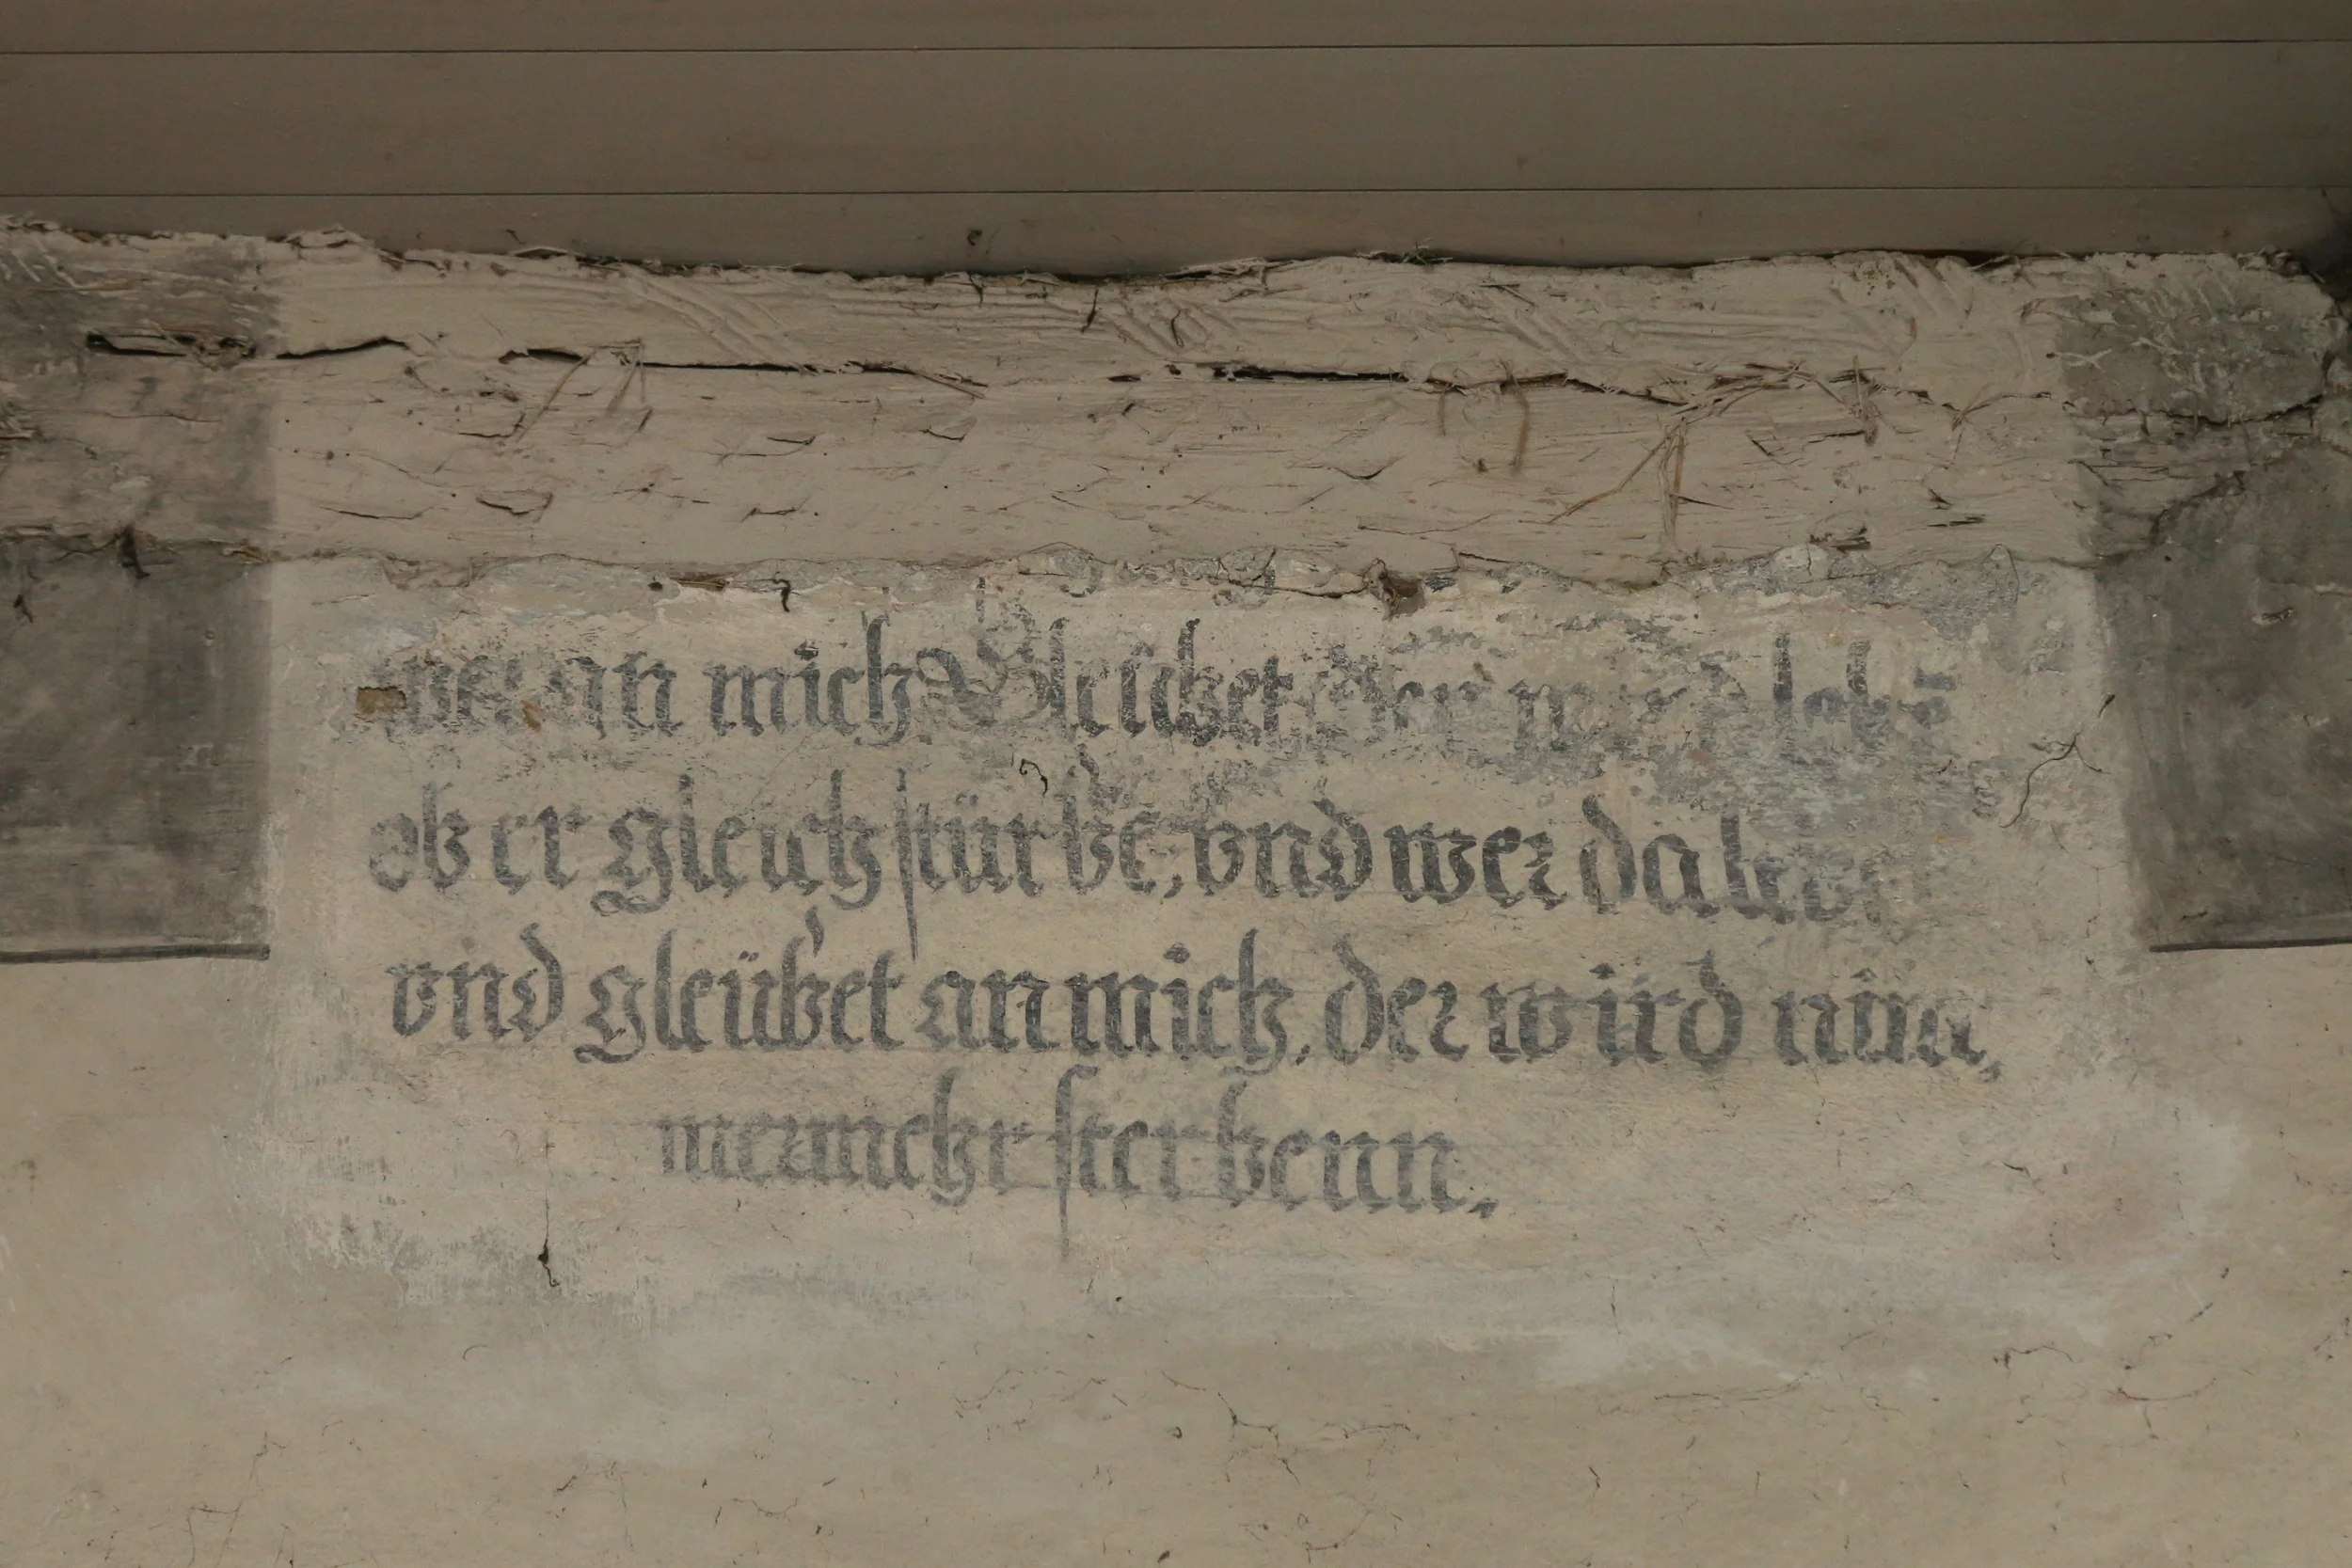 wer an mich Gleubet der wird lebē
ob er gleich stürbe, vnd wer da lebet
vnd gleübet an mich, der wird nim,
mermehr sterbenn,